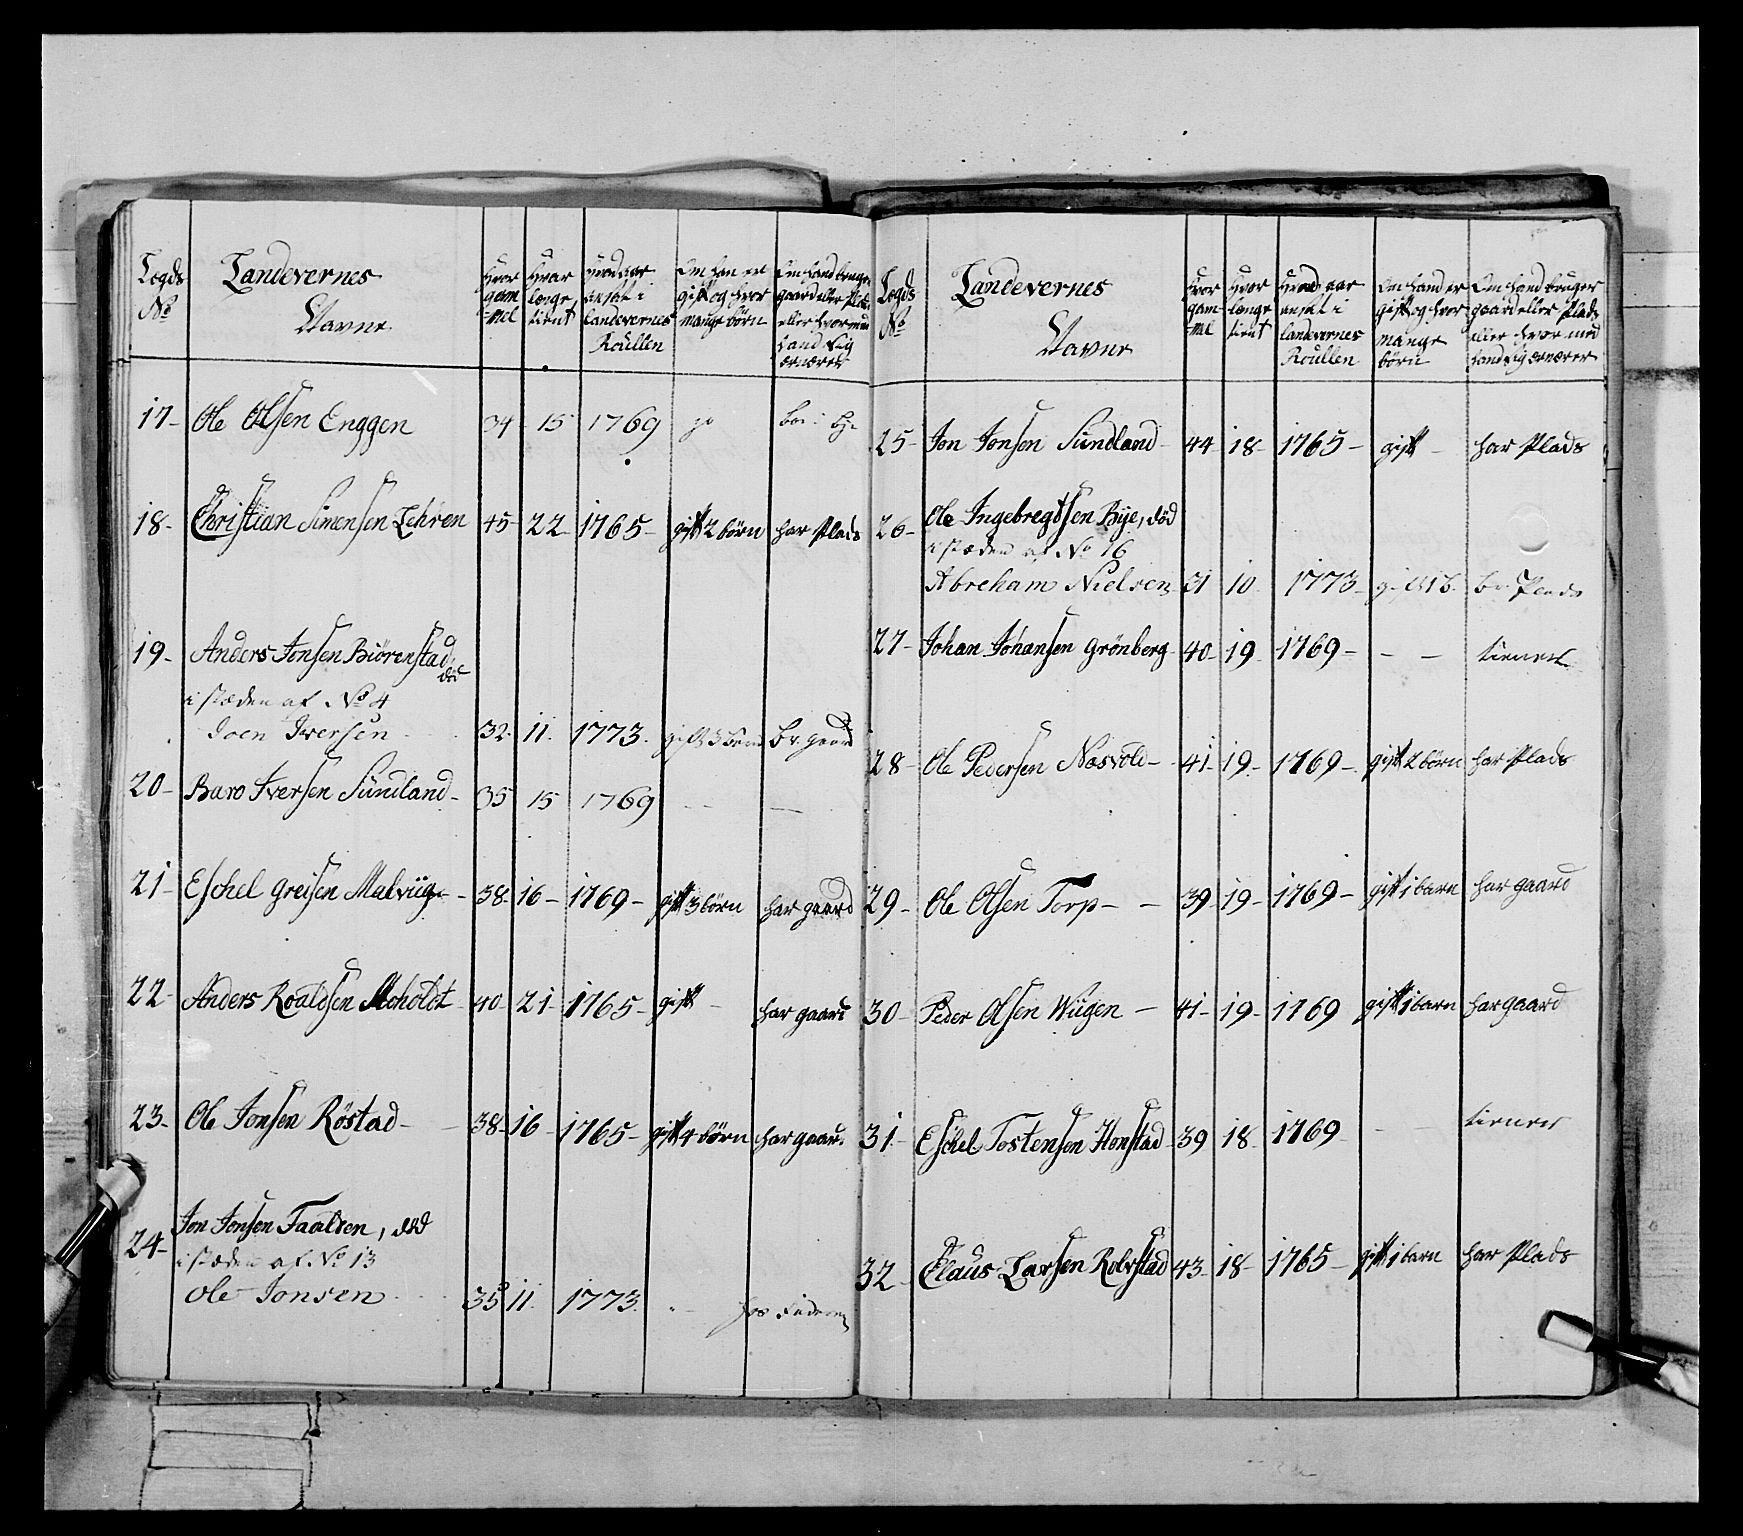 Legds No
Landevernes Navne
Hvor gam-mel
Hvor længe tient
Hvad aar ansat i Landevernes Roullen
Om han er gift og hvor mange börn
Om hand bruger gaard eller Plads eller hvor med hand sig ernærer
17- Ole Olsen Enggen 34 15 1769
18- Christian Simensen Lehren 45- 22- 1765- gift 2 börn har Plads
19- Anders Jonsen Biörenstad, död
i stæden af No 4
Joen Iversen 32. 11. 1773. gift 3 börn br. gaard
20- Baro Iversen Sundland- 35 15 1769 - - -
21- Eschel Greisen Malviig- - 38- 16- 1769- gift 3 börn har gaard
22- Anders Roaldsen Moholdt 40- 21- 1765- gift - har gaard
23- Ole Jonsen Röstad- - 38- 16- 1765- gift 4 börn har gaard
24- Jon Jonsen Taalsen, död
i stæden af No 13
Ole Jonsen 35 11. 1773. - hos Faderen
Legds No
Landevernes Navne
Hvor gam-mel
Hvor længe tient
Hvad aar ansat i Landevernes Roullen
Om hand er gift og hvor mange börn
Om hand bruger gaard eller Plads eller hvor med hand sig ernærer
25- Jon Jonsen Sundland- 44- 18- 1765- gift - har Plads
26- Ole Ingebregtsen Bye, död
i stæden af No 16
Abreham Nielsen 31 10 1773- gift 1 b. br. Plads
27- Johan Johansen Grönberg 40- 19 1769- - - tiener
28- Ole Pedersen Næsvold- - 41- 19- 1769- gift 2 börn har Plads
29- Ole Olsen Torp- - 39- 19- 1769- gift 1 barn har gaard
30- Peder Olsen Wiigen - 41- 19- 1769 gift 1 barn har gaard
31- Eschel Tostensen Honstad 39 18 1769 - tiener
32- Claus Larsen Rolvstad 43- 18- 1765- gift 1 barn har Plads